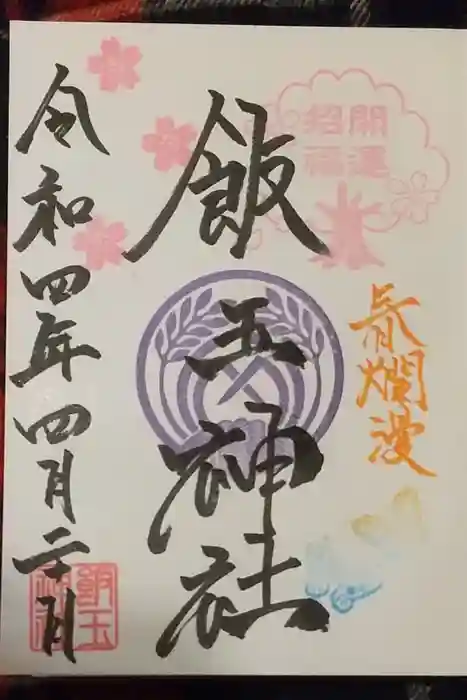 開運
招福
春爛漫
飯玉神社
令和四年四月二日
飯玉
神社